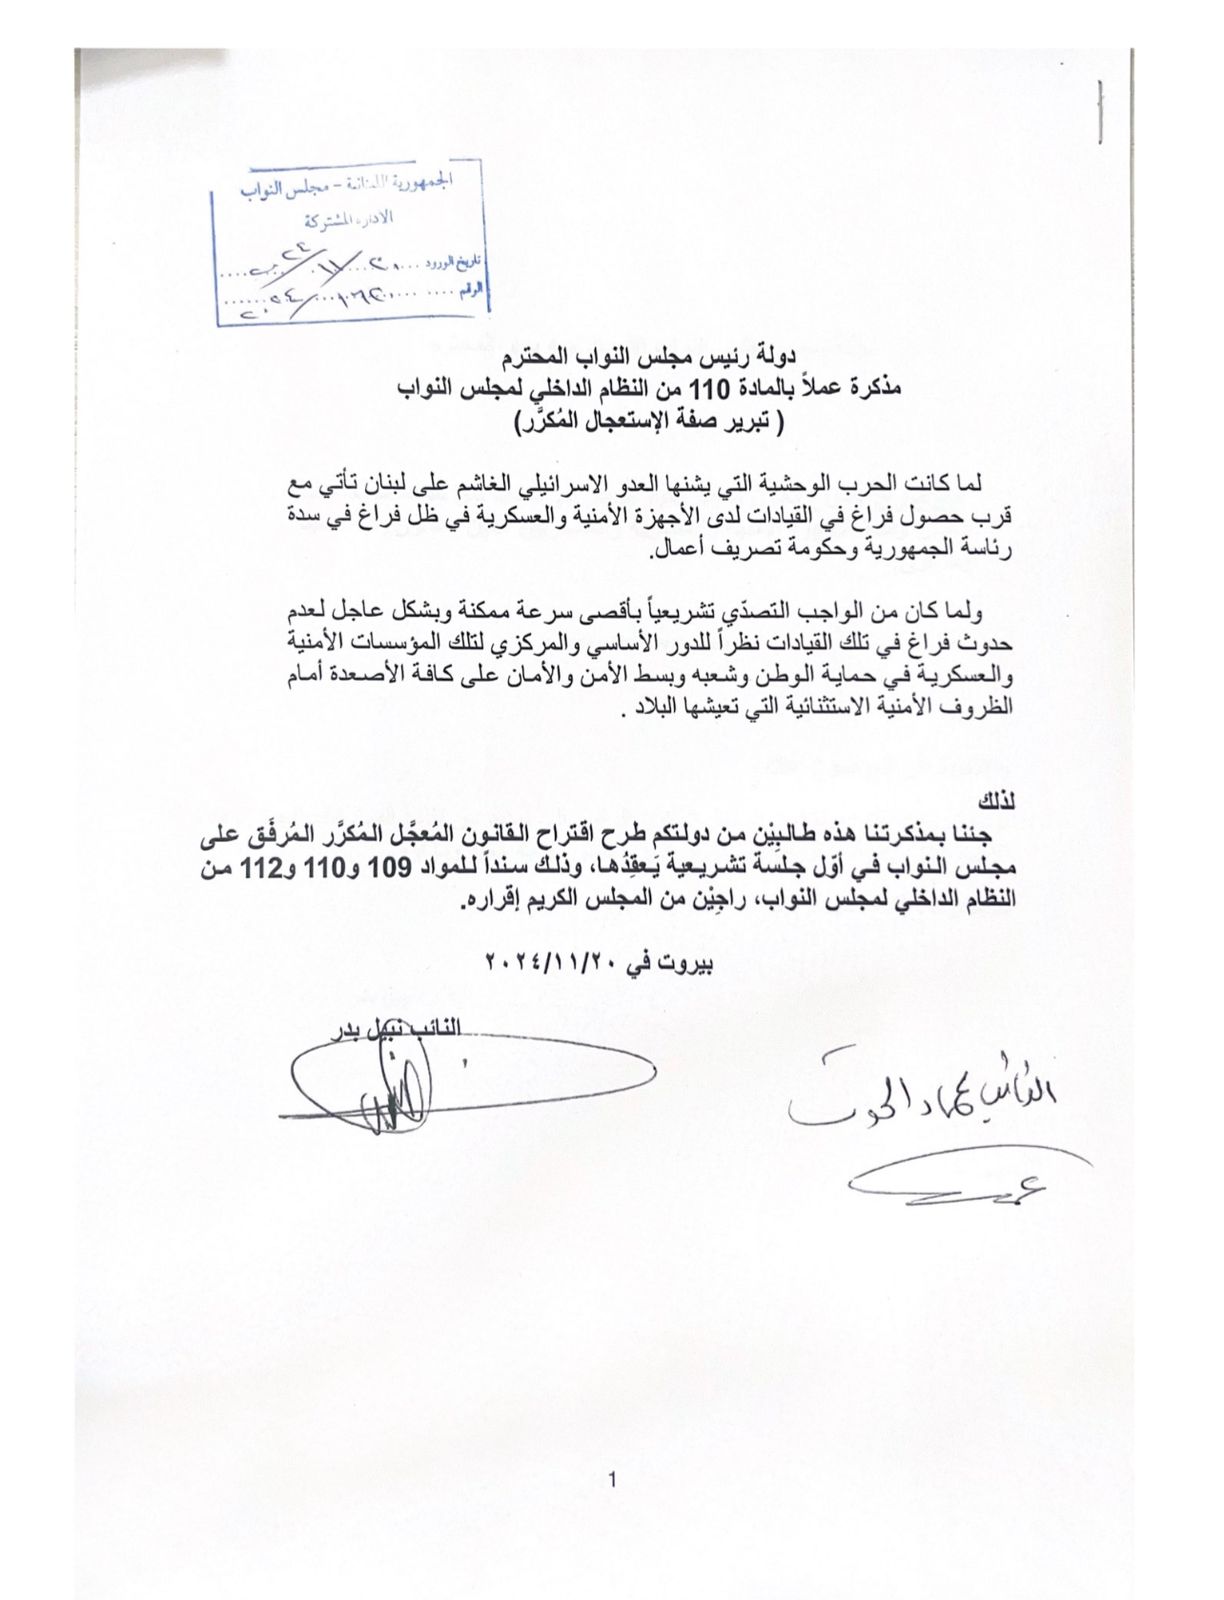 الجمهورية اللبنانية - مجلس النواب
الادارة المشتركة
تاريخ الورود
الرقم
دولة رئيس مجلس النواب المحترم
مذكرة عملاً بالمادة 110 من النظام الداخلي لمجلس النواب
( تبرير صفة الإستعجال المُكرَّر)
لما كانت الحرب الوحشية التي يشنها العدو الاسرائيلي الغاشم على لبنان تأتي مع
قرب حصول فراغ في القيادات لدى الأجهزة الأمنية والعسكرية في ظل فراغ في سدة
رئاسة الجمهورية وحكومة تصريف أعمال.
ولما كان من الواجب التصدّي تشريعياً بأقصى سرعة ممكنة وبشكل عاجل لعدم
حدوث فراغ في تلك القيادات نظراً للدور الأساسي والمركزي لتلك المؤسسات الأمنية
والعسكرية في حماية الوطن وشعبه وبسط الأمن والأمان على كافة الأصعدة أمام
الظروف الأمنية الاستثنائية التي تعيشها البلاد .
لذلك
جئنا بمذكرتنا هذه طالبِيْن من دولتكم طرح اقتراح القانون المُعجَّل المُكرَّر المُرفَق على
مجلس النواب في أوّل جلسة تشريعية يَعقِدُها، وذلك سنداً للمواد 109 و110 و112 من
النظام الداخلي لمجلس النواب، راجِيْن من المجلس الكريم إقراره.
بيروت في ٢٠٢٤/١١/٢٠
النائب نبيل بدر
النائب عماد الحوت
1